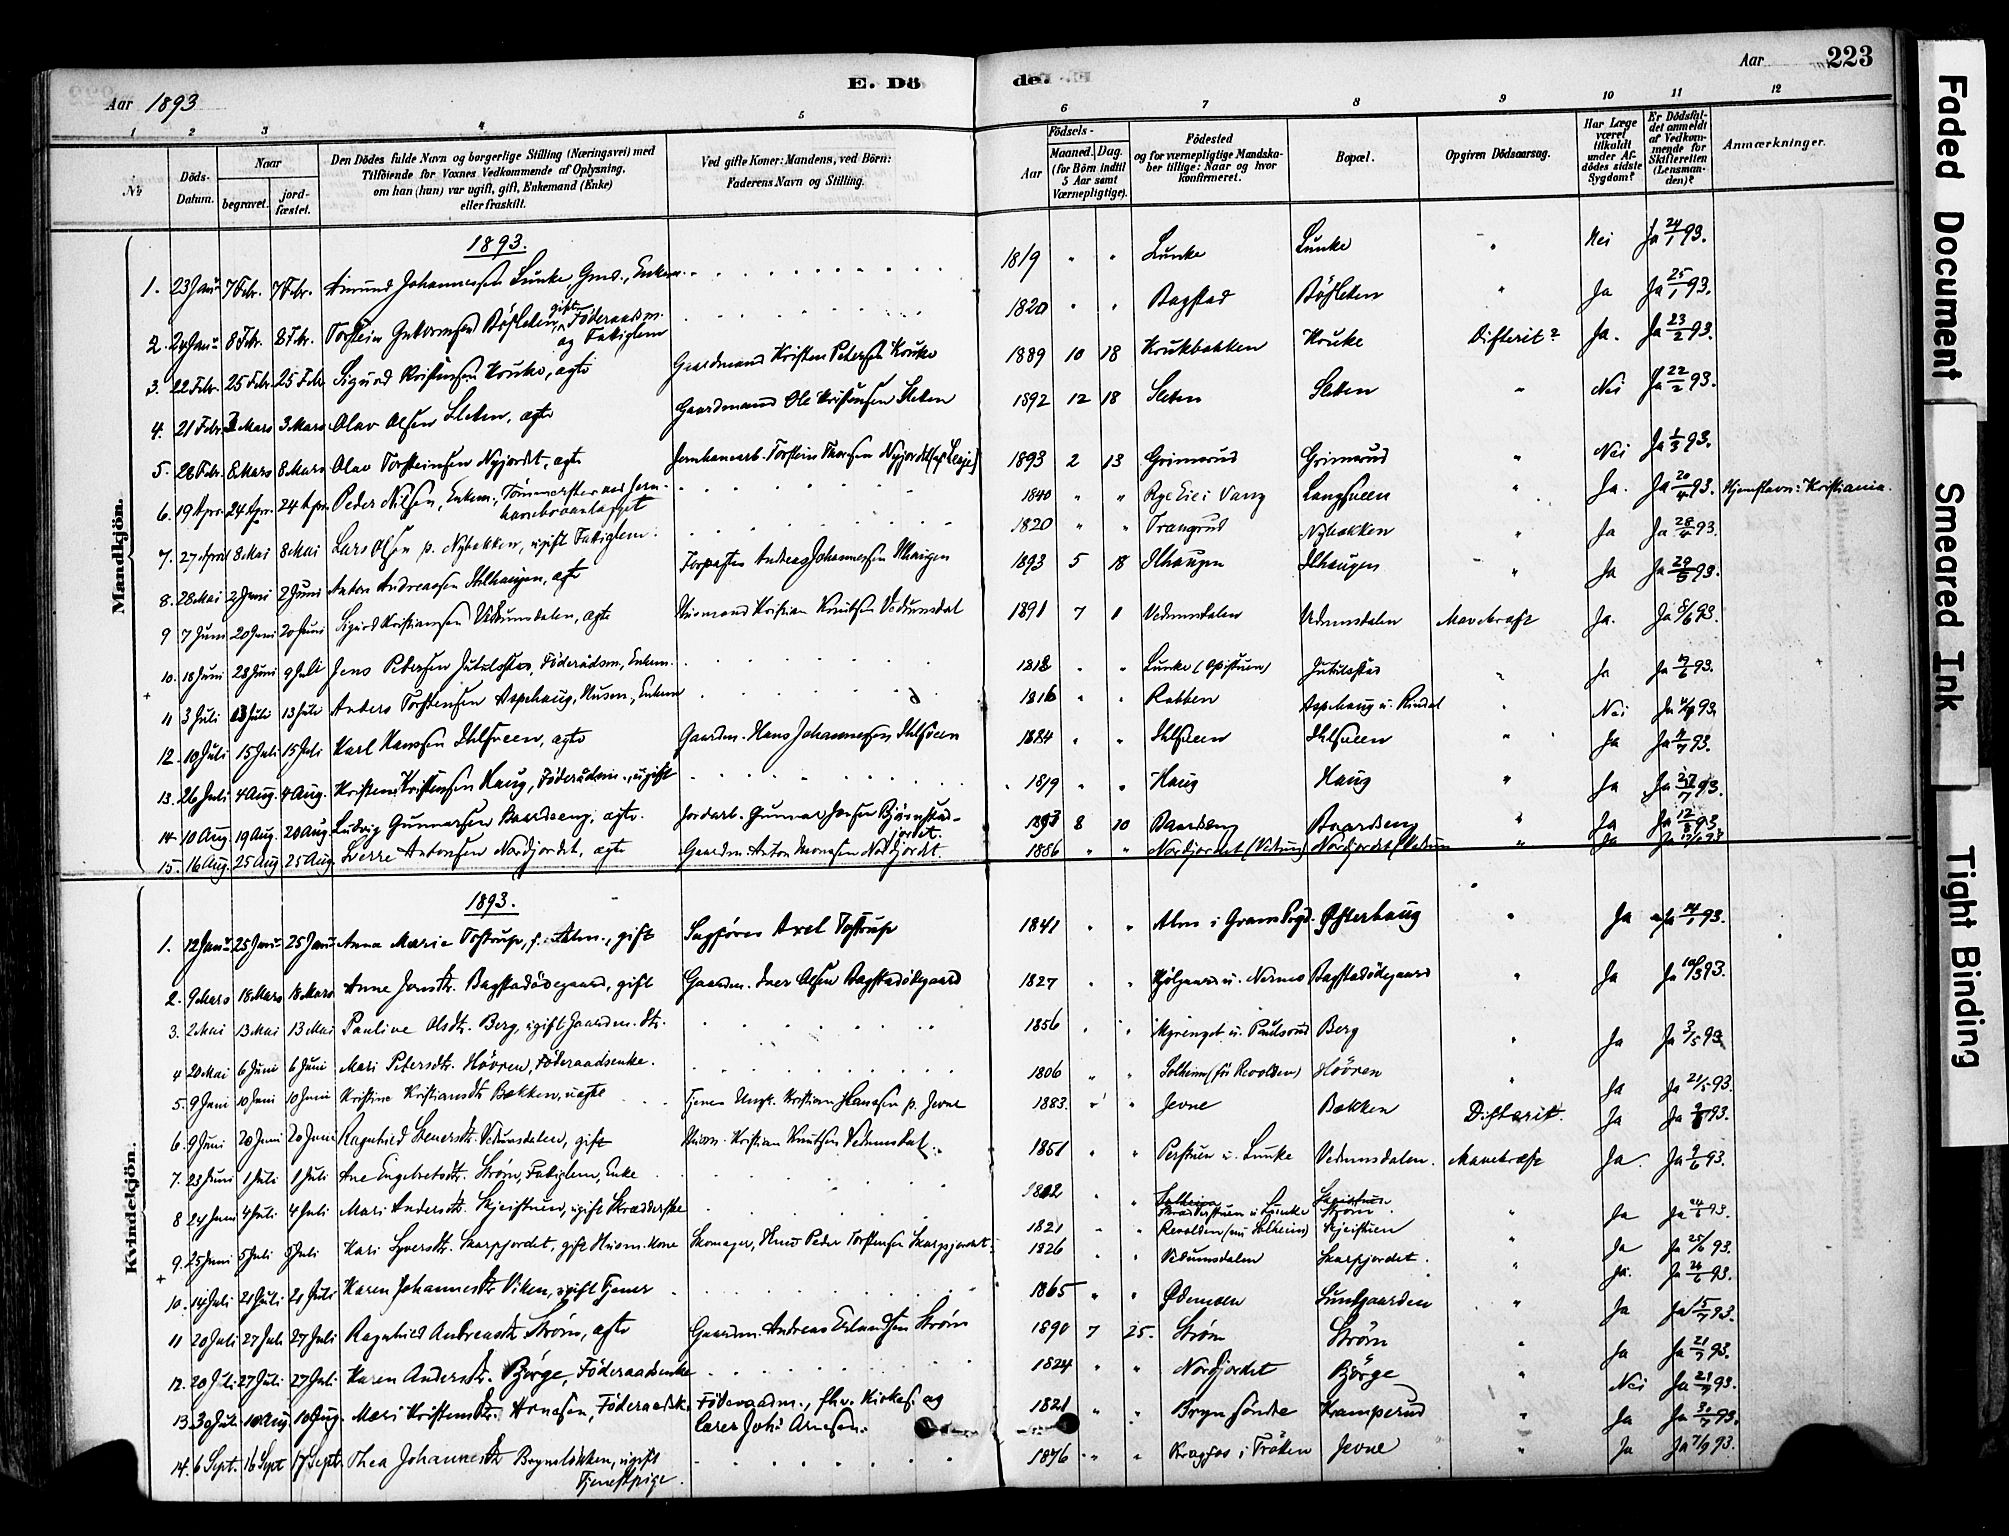 223
E. Döde.
Aar 1893
Aar
1 2 3 4 5 6 7 8 9 10 11 12
№
Döds-Datum.
Naar
begravet.
jord-fæstet.
Den Dödes fulde Navn og borgerlige Stilling (Næringsvei) med Tilföiende for Voxnes Vedkommende af Oplysning, om han (hun) var ugift, gift, Enkemand (Enke) eller fraskilt.
Ved gifte Koner: Mandens, ved Börn: Faderens Navn og Stilling.
Födsels-
Aar
Maaned. Dag.
(for Börn indtil 5 Aar samt Værnepligtige).
Födested og for værnepligtige Mandskaber tillige: Naar og hvor konfirmeret.
Bopæl.
Opgiven Dödsaarsag.
Har Læge været tilkaldt under Afdödes sidste Sygdom?
Er Dödsfaldet anmeldt af Vedkommende for Skifteretten (Lensmanden)?
Anmærkninger.
Mandkjön.
1893.
1. 23 Janr 7 Febr. 7 Febr. Amund Johannessen Lunke, Enkem. 1819 " " Lunke Lunke " Nei Ja 24/1 93.
2. 24 Janr 8 Febr. 8 Febr. Torstein Guttormsen gift Föderaadsm. og Fatiglem 1820 " " Bagstad " Ja Ja 25/1 93.
3. 22 Febr. 25 Febr. 25 Febr. Sigurd Kristensen Kruke, ægte Gaardmand Kristen Petersen Kruke 1889 10 18 Krukbakken Kruke Difterit? Ja. Ja 23/2 93.
4. 21 Febr. 3 Mars 3 Mars Olav Olsen Sletten, ægte Gaardmand Ole Kristensen Sletten 1892 12 18 Sletten Sletten " Nei Ja 22/2 93.
5. 28 Febr. 8 Mars 8 Mars Olav Torsteinsen Nyjordet, ægte Jernbanearb. Torstein Thoresen Nyjordet 1893 2 13 Grimsrud Grimsrud " Nei Ja 1/3 93.
6. 19 Apr. 24 Apr. 24 Apr. Peder Nilsen, Enkem., Tømmermester ved Jernbanebroanlægget 1840 " " i Vang Langsveen " Ja. Ja 20/4 93. Hjemstavn: Kristiania.
7. 27 April 8 Mai 8 Mai Lars Olsen p. Nybakken, ugift Fatiglem. 1820 " " Trangrud Nybakken " Ja Ja 28/4 93.
8. 28 Mai 2 Juni 2 Juni Anton Andreassen Ihlhaugen, ægte Andreas Johannessen Ilhaugen 1893 5 18 Ilhaugen Ilhaugen " Ja Ja 29/5 93.
9 7 Juni 20 Juni 20 Juni Sigurd Kristiansen Vedumsdalen, ægte Husmand Kristian Knutsen Vedumsdal 1891 7 1 Vedumsdalen Vedumsdalen Mavekræft Ja. Ja 8/6 93.
10. 18 Juni 28 Juni 9 Juli Jens Petersen Jutulstad, Föderådsm., Enkem. 1818 " " Lunke (Opistuen) Jutulstad " Ja Ja 93.
11 3 Juli 13 Juli 13 Juli Anders Torstensen Aspehaug, Husm., Enkem 1816 " " Robben Aspehaug u. Rindal " Nei Ja 93.
12. 10 Juli 15 Juli 15 Juli Karl Hansen Ihlsveen, ægte Gaardm. Hans Johannessen Ihlsveen 1884 " " Ihlsveen Ihlsveen " Ja Ja 93.
13. 26 Juli 4 Aug. 4 Aug. Kristen Kristensen Haug, Föderådsm., ugift 1819 " " Haug Haug " Ja Ja 27/7 93.
14. 10 Aug. 19 Aug. 20 Aug. Ludvig Gunnarsen Baardseng, ægte. Jordarb. Gunnar Jensen Bjørnstadjordet. 1893 8 10 Baardseng Baardseng " Ja Ja 12/8 93.
15. 16 Aug. 25 Aug. 25 Aug. Sverre Antonsen Nordjordet, ægte Gaardm. Anton Nordjordet. 1886 " " Nordjordet (Vedum) Nordjordet (Vedum " Ja Ja 93
Kvindekjön.
1893.
1. 12 Janr 25 Janr 25 Janr Anna Marie Tostrup, f. Alm, gift Sagförer Axel Tostrup 1841 " " Alm i Grans Prgd. Østerhaug " Ja Ja 14/1 93.
2. 9 Mars 18 Mars 18 Mars Anne Jensdtr. Bagstadödegaard, gift Gaardm. Iver Olsen Bagstadödegaard 1827 " " u. Nermo Bagstadödegaard " Ja Ja 10/3 93.
3. 2 Mai 13 Mai 13 Mai Pauline Olsdtr. Berg, ugift Gaardm. Dtr. 1856 " " Myrenget u. Paulsrud Berg " Ja Ja 3/5 93
4 20 Mai 6 Juni 6 Juni Mari Petersdtr. Hövren, Föderaadsenke. 1806 " " Solheim (för Revolden) Hövren " Ja Ja 21/5 93.
5. 9 Juni 10 Juni 10 Juni Kristine Kristiansdtr. Bakken, uægte Tjener Ungk. Kristian Hansen p. Jevne 1883. " " Jevne Bakken Difterit. Ja Ja 93.
6. 9 Juni 20 Juni 20 Juni Ragnhild Steversdtr. Vedumsdalen, gift Husm. Kristian Knutsen Vedumsdal. 1851 " " Perstuen u. Lunke Vedumsdalen. Mavekræft Ja. Ja 9/6 93.
7. 23 Juni 1 Juli 1 Juli Ane Engebretsdtr. Ström, Fatiglem, Enke 1802 " " Skrædderstuen u. Lunke Ström. " Ja Ja 24/6 93.
8 24 Juni 4 Juli 4 Juli Mari Andersdtr. Skjeistuen, ugift Skrædderske 1821 " " Revolden (nu Solheim) Skjeistuen " Ja Ja 25/6 93.
9. 25 Juni 5 Juli 5 Juli Kari Syversdtr. Skarpjordet, gift Husm. Kone Skomager, Husm. Peder Torstensen Skarpjordet. 1826 " " Vedumsdalen Skarpjordet. " Ja. Ja 26/6 93.
10. 14 Juli 21 Juli 21 Juli Karen Johannesdtr. Viken, ugift Tjener 1865 " " Ødemoen Lundgaarden " Ja Ja 15/7 93.
11 20 Juli 27 Juli 27 Juli Ragnhild Andreasdtr. Ström, ægte Gaardm. Andreas Erlandsen Ström 1890 7 25. Ström Ström " Ja Ja 21/7 93.
12. 20 Juli 27 Juli 27 Juli Karen Andersdtr. Børge, Föderaadsenke 1824 " " Nordjordet Börge " Nei Ja 21/7 93.
13. 30 Juli 10 Aug 10 Aug. Mari Kristensdtr. Arnesen, Föderaadsk. Föderaadm., fhv. Kirkes. og Lærer Johs Arnesen. 1821 " " Bryn söndre Kramperud " Ja Ja 31/7 93.
14. 6 Sept. 16 Sept 17 Sept. Thea Johannesdtr. Brynsløkken, ugift Tjenestpige. 1876 " " Kragfos i Trötten Jevne " Ja Ja 7/9 93.
Faded Document
Smeared Ink
Tight Binding